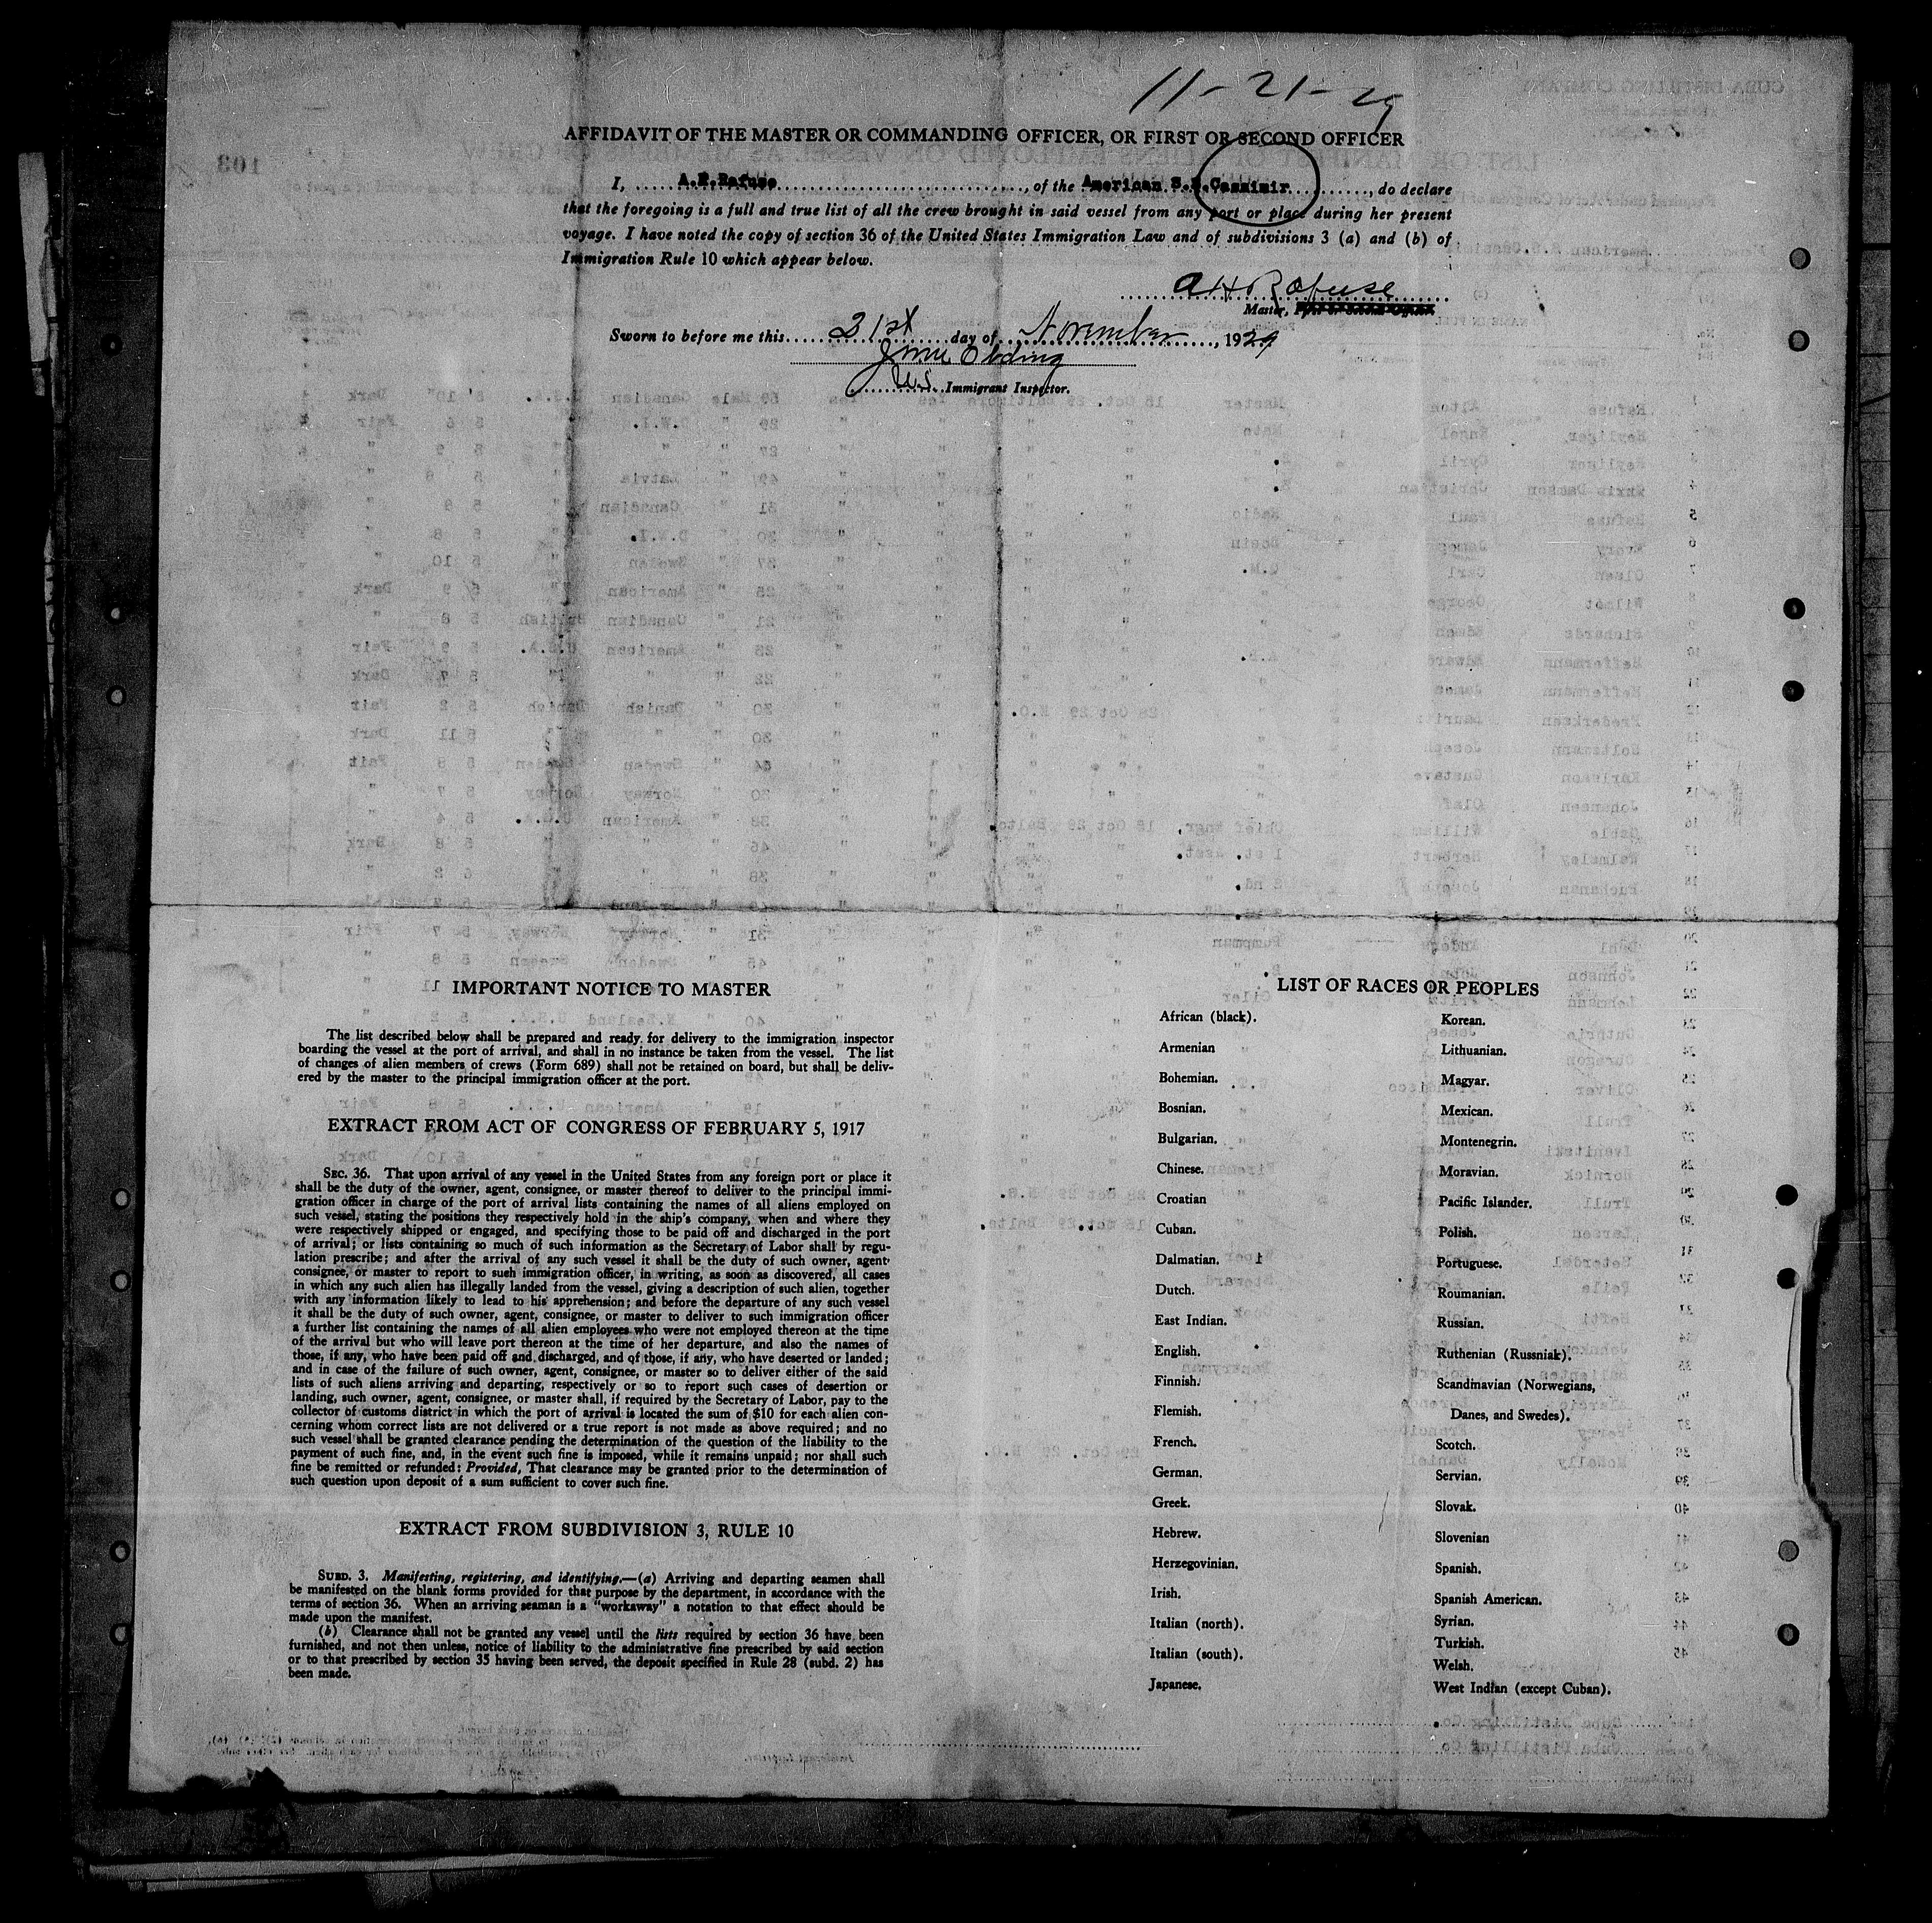 11-21-29
AFFIDAVIT OF THE MASTER OR COMMANDING OFFICER, OR FIRST OR SECOND OFFICER
I, A.H.Rafuse, of the American S.S.Cassimir, do declare
that the foregoing is a full and true list of all the crew brought in said vessel from any port or place during her present
voyage. I have noted the copy of section 36 of the United States Immigration Law and of subdivisions 3 (a) and (b) of
Immigration Rule 10 which appear below.
A H Rafuse
Master,
Sworn to before me this 21st day of November, 1929
U.S. Immigrant Inspector.
IMPORTANT NOTICE TO MASTER
The list described below shall be prepared and ready for delivery to the immigration inspector
boarding the vessel at the port of arrival, and shall in no instance be taken from the vessel. The list
of changes of alien members of crews (Form 689) shall not be retained on board, but shall be deliv-
ered by the master to the principal immigration officer at the port.
EXTRACT FROM ACT OF CONGRESS OF FEBRUARY 5, 1917
SEC. 36. That upon arrival of any vessel in the United States from any foreign port or place it
shall be the duty of the owner, agent, consignee, or master thereof to deliver to the principal immi-
gration officer in charge of the port of arrival lists containing the names of all aliens employed on
such vessel, stating the positions they respectively hold in the ship's company, when and where they
were respectively shipped or engaged, and specifying those to be paid off and discharged in the port
of arrival; or lists containing so much of such information as the Secretary of Labor shall by regu-
lation prescribe; and after the arrival of any such vessel it shall be the duty of such owner, agent
consignee, or master to report to such immigration officer, in writing, as soon as discovered, all cases
in which any such alien has illegally landed from the vessel, giving a description of such alien, together
with any information likely to lead to his apprehension; and before the departure of any such vessel
it shall be the duty of such owner, agent, consignee, or master to deliver to such immigration officer
a further list containing the names of all alien employees who were not employed thereon at the time
of the arrival but who will leave port thereon at the time of her departure, and also the names of
those, if any, who have been paid off and discharged, and of those, if any, who have deserted or landed;
and in case of the failure of such owner, agent, consignee, or master so to deliver either of the said
lists of such aliens arriving and departing, respectively or so to report such cases of desertion or
landing, such owner, agent, consignee, or master shall, if required by the Secretary of Labor, pay to the
collector of customs district in which the port of arrival is located the sum of $10 for each alien con-
cerning whom correct lists are not delivered or a true report is not made as above required; and no
such vessel shall be granted clearance pending the determination of the question of the liability to the
payment of such fine, and, in the event such fine is imposed, while it remains unpaid; nor shall such
fine be remitted or refunded: Provided, That clearance may be granted prior to the determination of
such question upon deposit of a sum sufficient to cover such fine.
EXTRACT FROM SUBDIVISION 3, RULE 10
SUBD. 3. Manifesting, registering, and identifying.—(a) Arriving and departing seamen shall
be manifested on the blank forms provided for that purpose by the department, in accordance with the
terms of section 36. When an arriving seaman is a "workaway" a notation to that effect should be
made upon the manifest.
(b) Clearance shall not be granted any vessel until the lists required by section 36 have been
furnished, and not then unless, notice of liability to the administrative fine prescribed by said section
or to that prescribed by section 35 having been served, the deposit specified in Rule 28 (subd. 2) has
been made.
LIST OF RACES OR PEOPLES
African (black).
Armenian
Bohemian.
Bosnian.
Bulgarian.
Chinese.
Croatian
Cuban.
Dalmatian.
Dutch.
East Indian.
English.
Finnish.
Flemish.
French.
German.
Greek.
Hebrew.
Herzegovinian.
Irish.
Italian (north).
Italian (south).
Japanese.
Korean.
Lithuanian.
Magyar.
Mexican.
Montenegrin.
Moravian.
Pacific Islander.
Polish.
Portuguese.
Roumanian.
Russian.
Ruthenian (Russniak).
Scandinavian (Norwegians,
Danes, and Swedes).
Scotch.
Servian.
Slovak.
Slovenian
Spanish.
Spanish American.
Syrian.
Turkish.
Welsh.
West Indian (except Cuban).